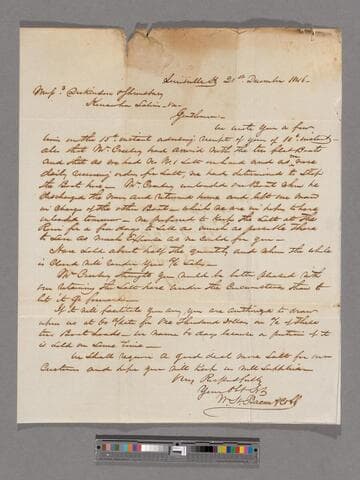 Louisville Ky 21st December 1846
Messrs Dickinson & Shrewsbury
Kanawha Salines Va
Gentlemen
We wrote you a few
lines on the 15th instant acknowledging receipt of yours of 10th instant
also that Mr Crosby had arrived with the two flat Boats
and that as we had no No 1 Salt on hand and as were
daily receiving orders for Salt, we had determined to Stop
the Boats here Mr Crosby unloaded one Boat then he
discharged the men and returned home and left one man
in charge of the other Boat which we are in hope being
unloaded tomorrow we proposed to keep the Salt at the
River for a few days to sell as much as possible there
to save as much expense as we could for you
Have sold about half the quantity and when the whole
is closed will render you a/c Sales
Mr Crosby thought you would be better pleased with
our retaining the Salt here under the circumstances than to
let it go forward
If it will facilitate you any you are authorized to draw
upon us at 60 d/sight for One Thousand dollars on a/c of these
two Boat loads in name 60 days because a portion of it
is sold on same time
We shall require a good deal more Salt for our
Customers and hope you will keep us well supplied
Very Respectfully
Your Obt Sts